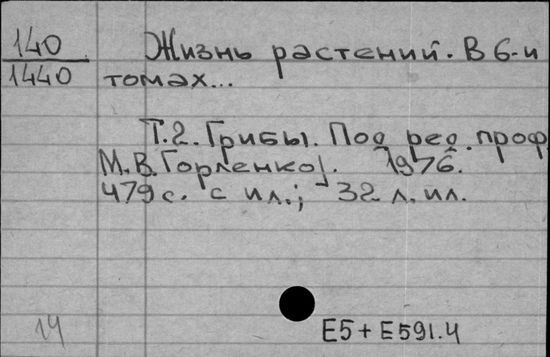 140
1440
Жизнь растений. В 6-и
томах...
Т.2. Грибы. Под ред. проф
М.В. Горленко]. 1976.
479 с. с ил.; 32 л. ил.
14
Е5 + Е591.4